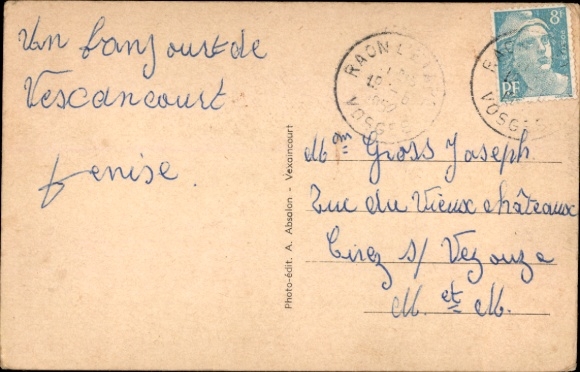 Un bonjour de
Vescancourt
Denise.
Photo-édit. A. Absalon - Vexaincourt
RAON L'ETAPE
VOSGES
8F
RF
Mme Gross Joseph
Rue du Vieux châteaux
Cirez s/ Vezouze
M. et M.